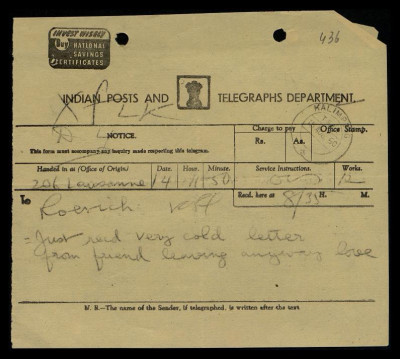 INVEST WISELY
Buy NATIONAL
SAVINGS
CERTIFICATES
436
INDIAN POSTS AND TELEGRAPHS DEPARTMENT.
NOTICE.
This form must accompany any enquiry made respecting this telegram.
Charge to pay
Rs. As.
Office Stamp.
Handed in at (Office of Origin) Date. Hour. Minute. Service Instructions. Words.
Lausanne 14 11 50
Recd. here at 8/35 H. M.
To
Roerich
= Just read very cold letter
from friend leaving anyway love
N. B.—The name of the Sender, if telegraphed, is written after the text